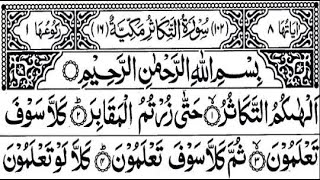 اٰيَاتُهَا ٨ (١٠٢) سُوْرَةُ التَّكَاثُرِ مَكِّيَّةٌ (١٦) رُكُوْعُهَا ١
بِسْمِ اللّٰهِ الرَّحْمٰنِ الرَّحِيْمِ
اَلْهٰىكُمُ التَّكَاثُرُ ۝١ حَتّٰى زُرْتُمُ الْمَقَابِرَ ۝٢ كَلَّا سَوْفَ
تَعْلَمُوْنَ ۝٣ ثُمَّ كَلَّا سَوْفَ تَعْلَمُوْنَ ۝٤ كَلَّا لَوْ تَعْلَمُوْنَ